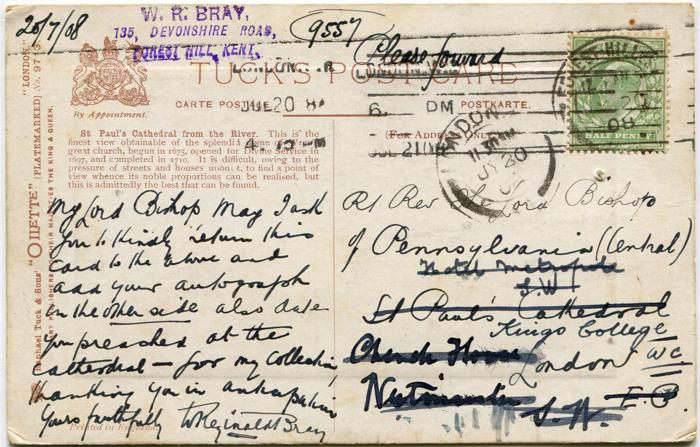 20/7/08
W. R. BRAY,
135, DEVONSHIRE ROAD,
FOREST HILL, KENT.
9557
Please forward
TUCK'S POST CARD
CARTE POSTALE
POSTKARTE.
By Appointment.
(FOR ADDRESS ONLY)
JUL 20 8
4.15 PM
6. PM
JUL 21 08
LONDON
11.30 AM
JY 20
FOREST HILL
HALF PENNY
St Paul's Cathedral from the River. This is the
finest view obtainable of the splendid dome of Wren's
great church, begun in 1675, opened for Divine Service in
1697, and completed in 1710. It is difficult, owing to the
pressure of streets and houses upon it, to find a point of
view whence its noble proportions can be realised, but
this is admittedly the best that can be found.
Raphael Tuck & Sons' "OILETTE" [PLATEMARKED] "LONDON"
ART PUBLISHERS TO THEIR MAJESTIES THE KING & QUEEN.
My Lord Bishop May I ask
you to kindly return this
card to the above and
add your autograph
on the other side also date
you preached at the
Cathedral – for my collection
thanking you in anticipation
Yours faithfully W Reginald Bray
Printed in England
Rt Rev The Lord Bishop
of Pennsylvania (Central)
Hotel Metropole
S.W
St Paul's Cathedral
Kings College
Church House
London WC
Westminster E C
S.W.